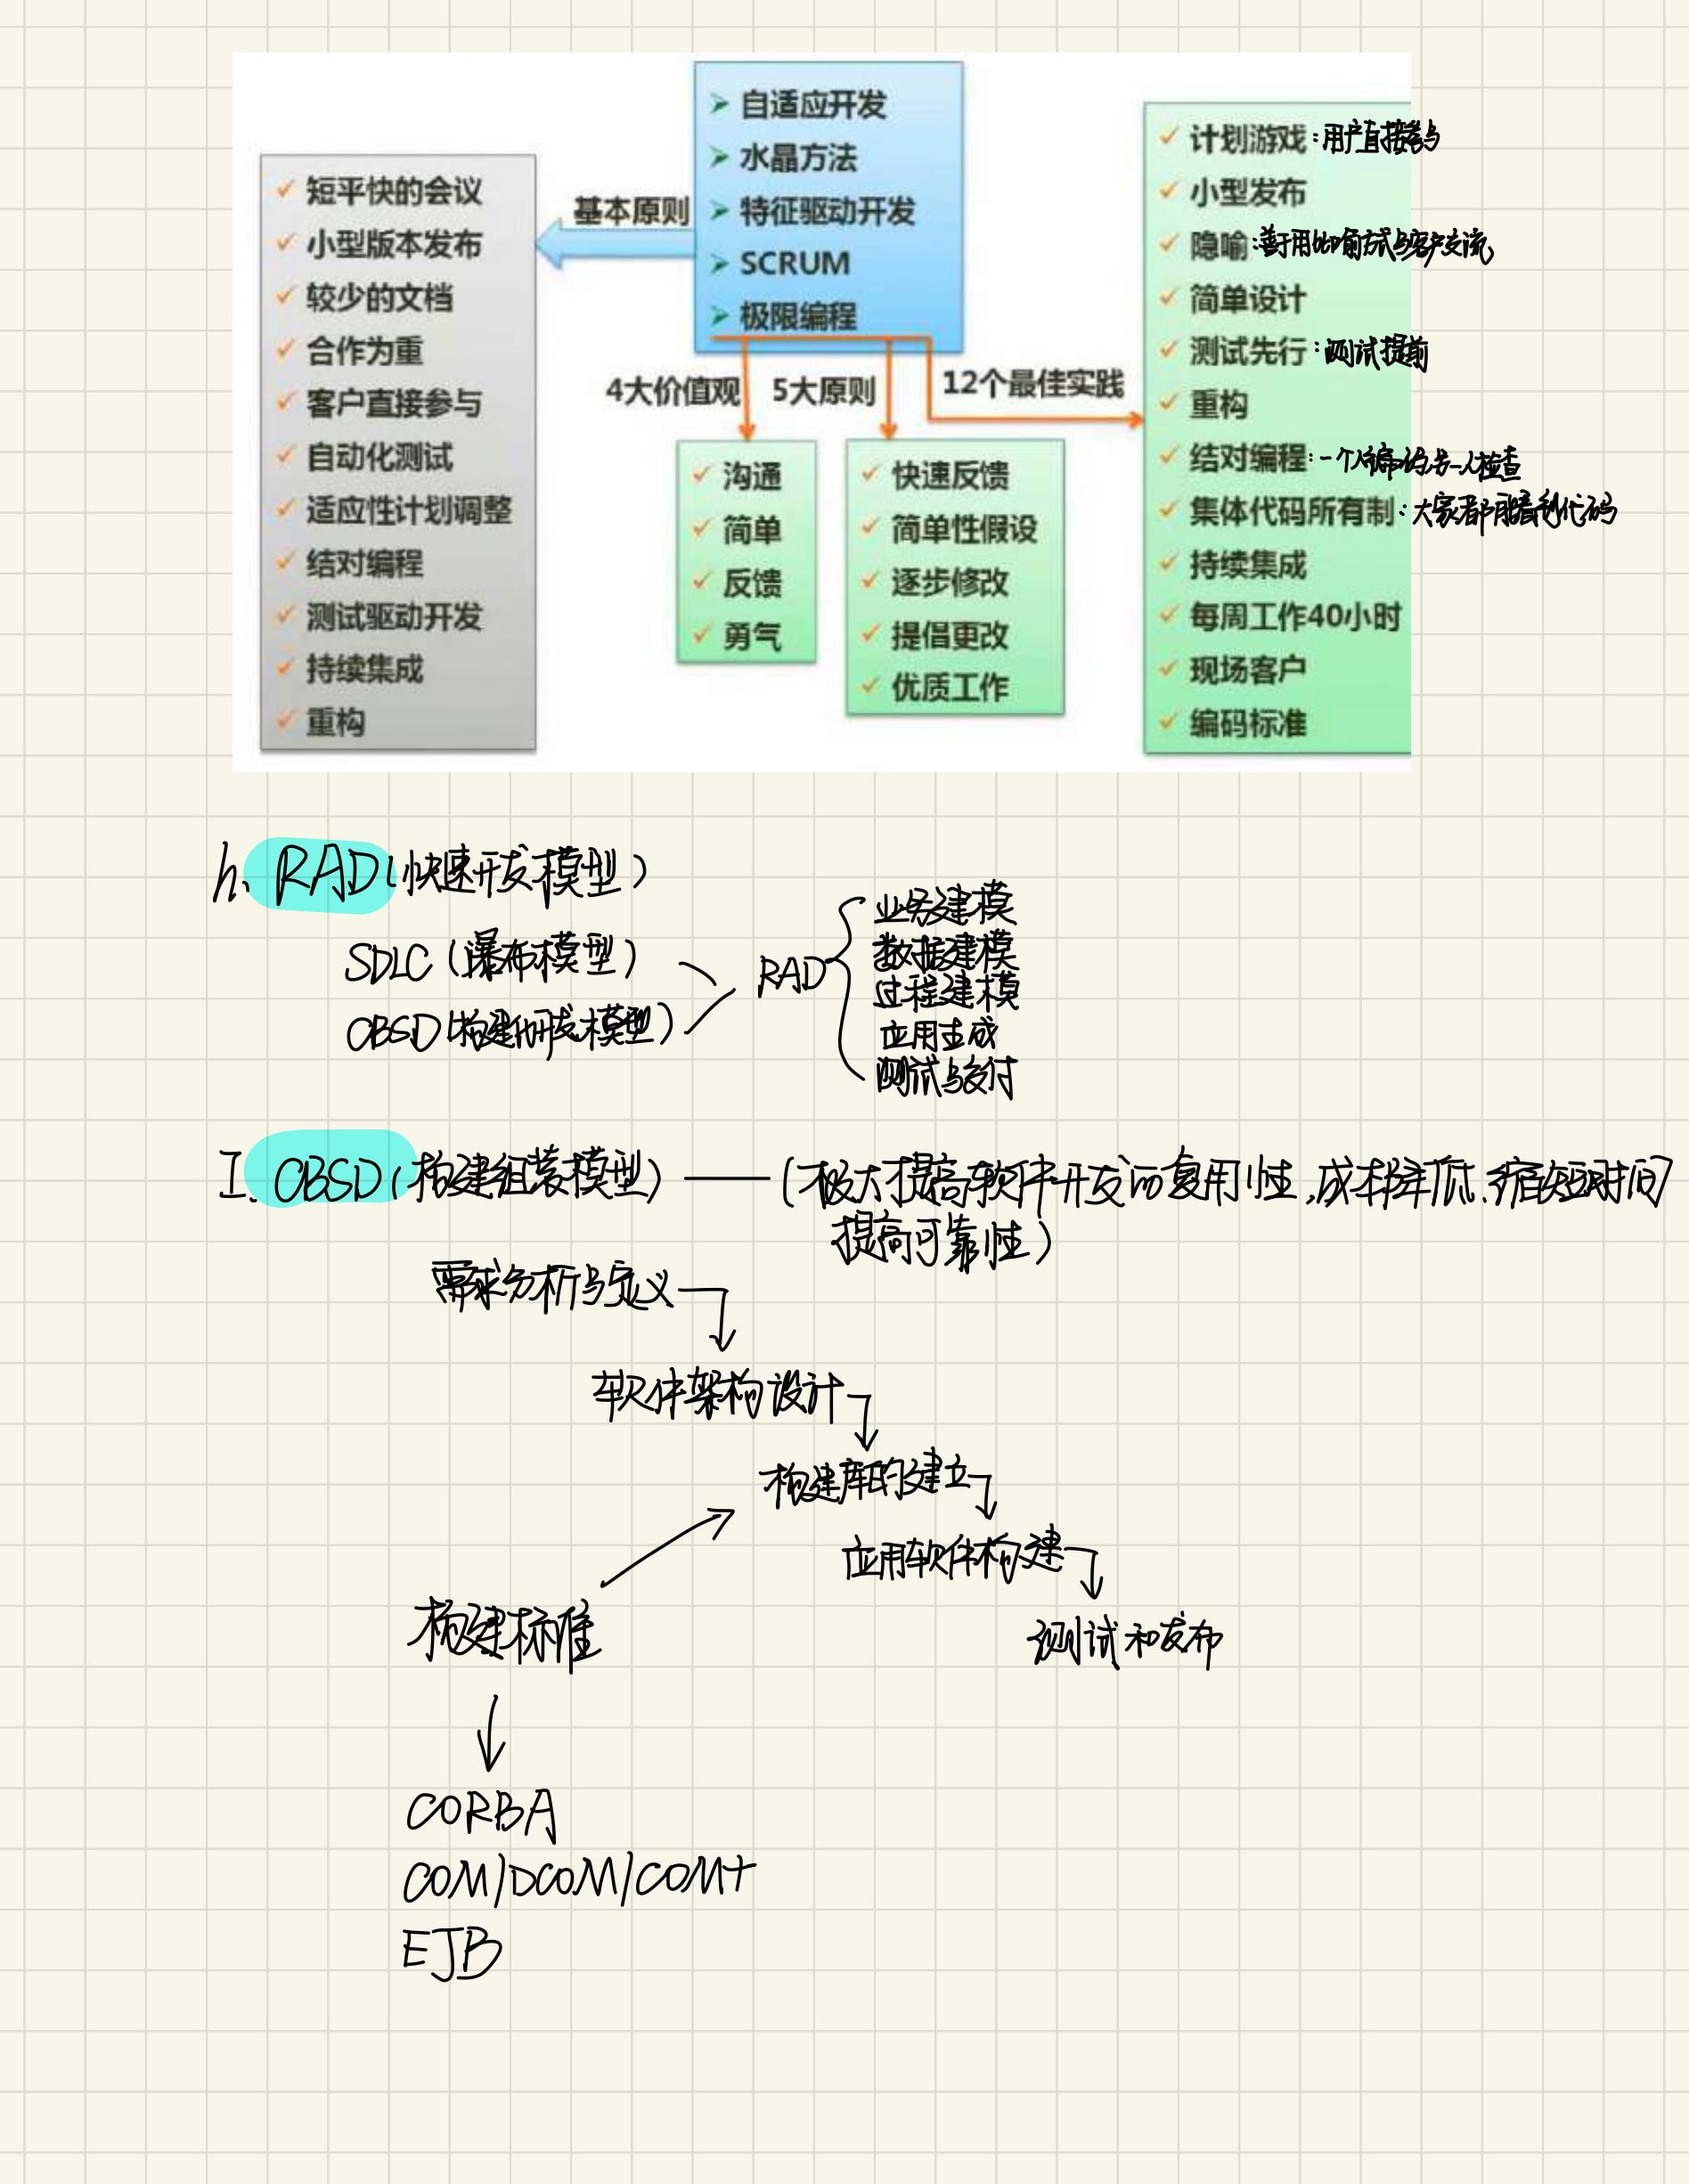 自适应开发
水晶方法
特征驱动开发
SCRUM
极限编程
基本原则
短平快的会议
小型版本发布
较少的文档
合作为重
客户直接参与
自动化测试
适应性计划调整
结对编程
测试驱动开发
持续集成
重构
4大价值观
沟通
简单
反馈
勇气
5大原则
快速反馈
简单性假设
逐步修改
提倡更改
优质工作
12个最佳实践
计划游戏:用户直接参与
小型发布
隐喻:善于用比喻方式与客户交流
简单设计
测试先行:测试提前
重构
结对编程:一个人编码另一人检查
集体代码所有制:大家都用看到代码
持续集成
每周工作40小时
现场客户
编码标准
h、RAD(快速开发模型)
SDLC(瀑布模型)
CBSD(构建化开发模型)
RAD
业务建模
数据建模
过程建模
应用生成
测试与交付
I. CBSD(构建组装模型)——(极大提高软件开发的复用性,成本降低、缩短时间
提高可靠性)
需求分析与定义
软件架构设计
构建库的建立
应用软件构建
测试和发布
构建标准
CORBA
COM/DCOM/COM+
EJB